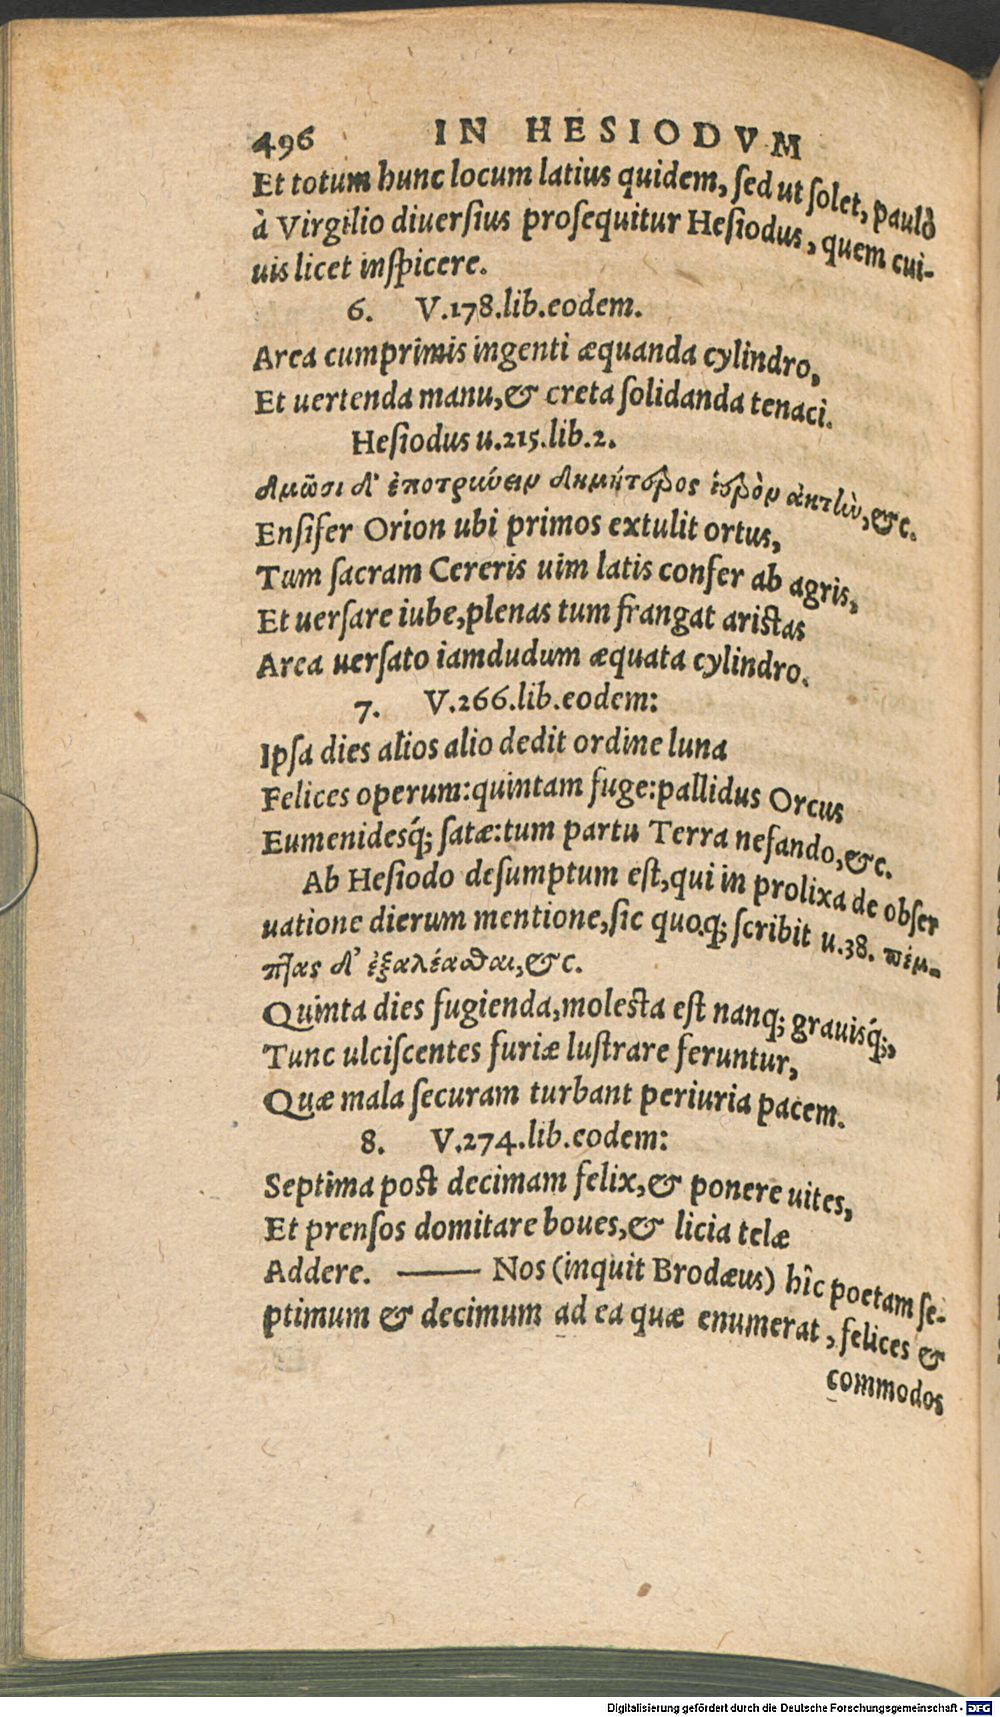 496 IN HESIODVM
Et totum hunc locum latius quidem, ſed ut ſolet, paulò
à Virgilio diuerſius proſequitur Heſiodus, quem cui-
uis licet inſpicere.
6. V.178.lib.eodem.
Area cumprimis ingenti æquanda cylindro,
Et uertenda manu,& creta ſolidanda tenaci.
Heſiodus u.215.lib.2.
δμῶσι δ' ἐποτρύνειν δημήτερος ἱερὸν ἀκτὴν,&c.
Enſifer Orion ubi primos extulit ortus,
Tum ſacram Cereris uim latis confer ab agris,
Et uerſare iube,plenas tum frangat ariſtas
Area uerſato iamdudum æquata cylindro.
7. V.266.lib.eodem:
Ipſa dies alios alio dedit ordine luna
Felices operum:quintam fuge:pallidus Orcus
Eumenidesq́; ſatæ:tum partu Terra nefando,&c.
Ab Heſiodo deſumptum eſt,qui in prolixa de obſer
uatione dierum mentione,ſic quoq; ſcribit u.38. πέμ-
πτας δ' ἐξαλέασθαι,&c.
Quinta dies fugienda,moleſta eſt nanq; grauisq́;,
Tunc ulciſcentes furiæ luſtrare feruntur,
Quæ mala ſecuram turbant periuria pacem.
8. V.274.lib.eodem:
Septima poſt decimam felix,& ponere uites,
Et prenſos domitare boues,& licia telæ
Addere. —— Nos (inquit Brodæus) hîc poetam ſe-
ptimum & decimum ad ea quæ enumerat, felices &
commodos
Digitalisierung gefördert durch die Deutsche Forschungsgemeinschaft - DFG